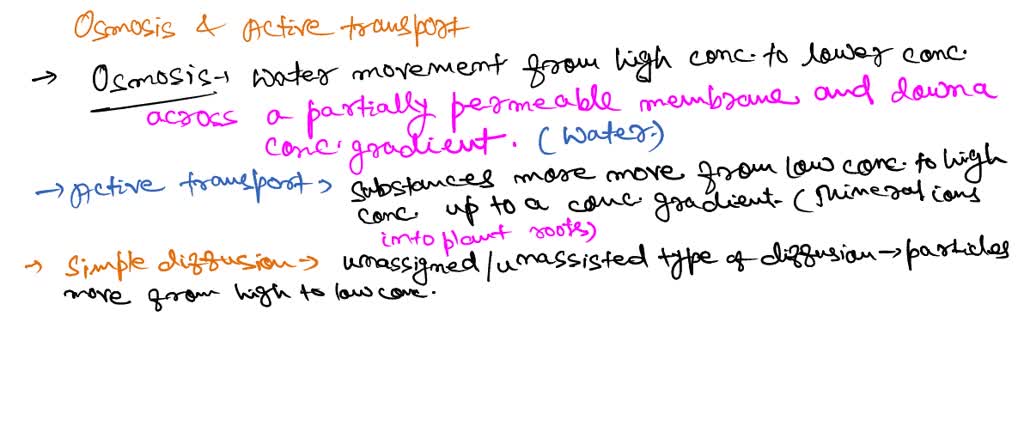 Osmosis & Active transport
→ Osmosis → Water movement from high conc. to lower conc.
across a partially permeable membrane and down a
conc. gradient. (Water.)
→ Active transport → Substances more move from low conc. to high
conc. up to a conc. gradient. (Mineral ions
into plant roots)
→ Simple diffusion → unassigned/unassisted type of diffusion → particles
move from high to low conc.